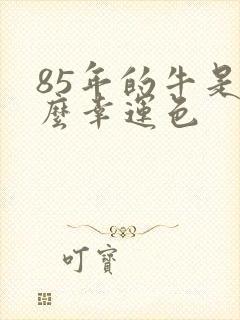 85年的牛是
麼幸運色
叮寶